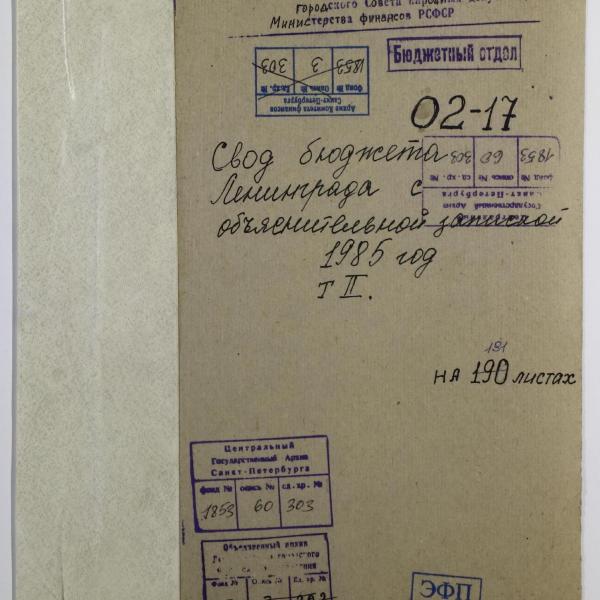 городского Совета народных депу
Министерства финансов РСФСР
Бюджетный отдел
1853 3 303
Фонд № Опись № Ед. хр. №
Архив Комитета финансов
Санкт-Петербурга
02-17
1853 60 303
фонд № опись № ед. хр. №
Государственный Архив
Санкт-Петербурга
Свод бюджета
Ленинграда с
объяснительной запиской
1985 год
т II.
191
на 190 листах
Центральный
Государственный Архив
Санкт-Петербурга
фонд № опись № ед. хр. №
1853 60 303
Объединенный архив
Фонд № Опись № Ед. хр. №
ЭФП